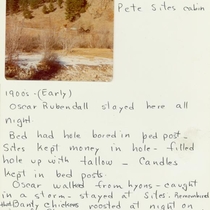 Pete Sites cabin
1900s - (Early)
Oscar Rubendall stayed here all
night.
Bed had hole bored in bed post -
Sites kept money in hole - filled
hole up with tallow - Candles
kept in bed posts.
Oscar walked from Lyons - caught
in a storm - stayed at Sites. Remembered
that Banty Chickens roosted at night on